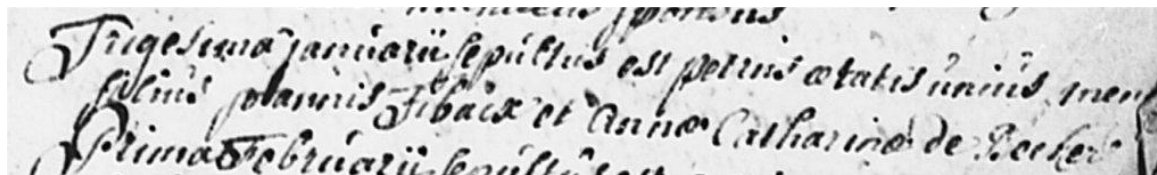 Trigesima januarii sepultus est petrus ætatis unius men
filius joannis Tibaix et Annæ Catharinæ de Becker
Prima Februarii sepultus est